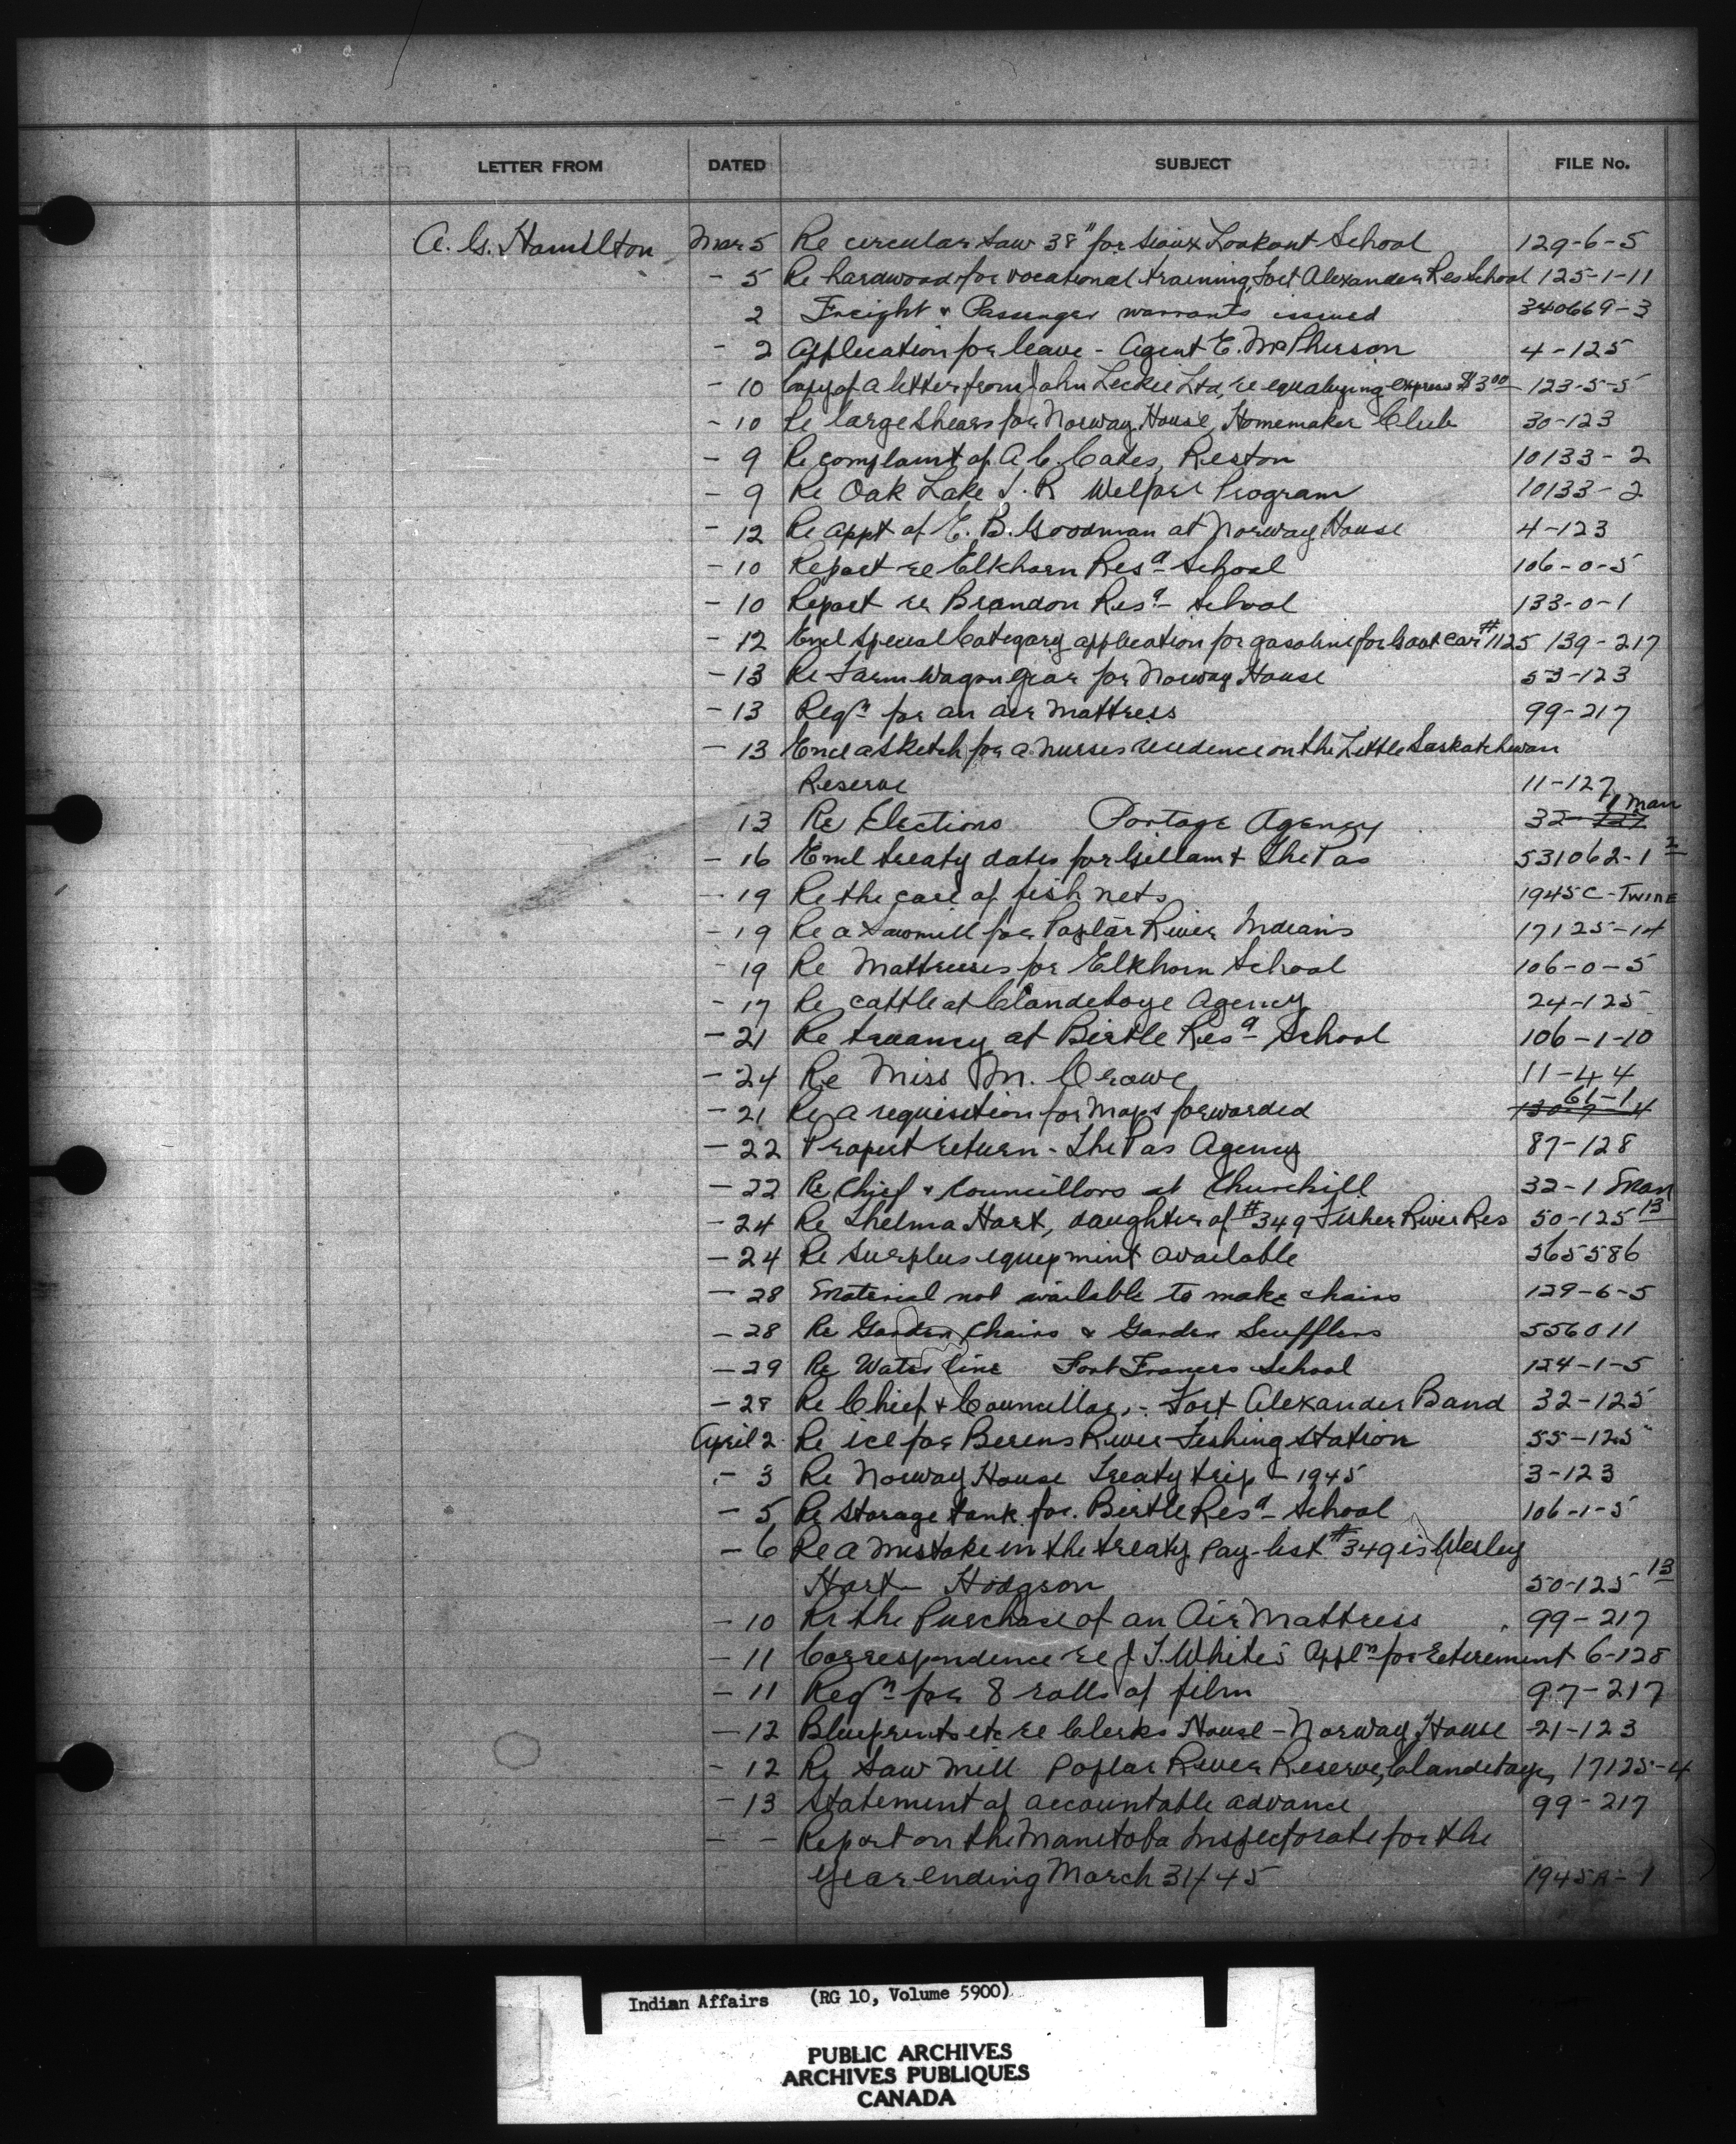 LETTER FROM DATED SUBJECT FILE No.
A. G. Hamilton Mar 5 Re circular saw 38" for Sioux Lookout School 129-6-5
- 5 Re hardwood for vocational training, Fort Alexander Res School 125-1-11
2 Freight & Passenger warrants issued 340669-3
- 2 Application for leave - Agent E. McPherson 4-125
- 10 Copy of a letter from John Leckie Ltd, re equalizing express $3.00 123-5-5
- 10 Re large shears for Norway House, Homemaker Club 30-123
- 9 Re complaint of A C Cates, Reston 10133-2
- 9 Re Oak Lake I. R Welfare Program 10133-2
- 12 Re appt of E. B. Goodman at Norway House 4-123
- 10 Report re Elkhorn Resl School 106-0-5
- 10 Report re Brandon Resl School 133-0-1
- 12 Encl Special Category application for gasoline for Govt Car #1125 139-217
- 13 Re Farm Wagon gear for Norway House 53-123
- 13 Reqn for an air mattress 99-217
- 13 Encl a sketch for a nurses residence on the Little Saskatchewan
Reserve 11-127
13 Re Elections Portage Agency 32-127 1 Man
- 16 Encl treaty dates for Gillam & The Pas 531062-1 2
- 19 Re the care of fish nets 1945C-TWINE
- 19 Re a sawmill for Poplar River Indians 17125-14
- 19 Re Mattresses for Elkhorn School 106-0-5
- 17 Re cattle at Clandeboye Agency 24-125
- 21 Re truancy at Birtle Resl School 106-1-10
- 24 Re Miss M. Crowe 11-44
- 21 Re a requisition for Maps forwarded 61-1
- 22 Propert return - The Pas Agency 87-128
- 22 Re Chief & Councillors at Churchill 32-1 Man
- 24 Re Thelma Hart, daughter of #349 Fisher River Res 50-125 13
- 24 Re surplus equipment available 565586
- 28 Material not available to make chairs 129-6-5
- 28 Re Garden Chairs & Garden Scufflers 556011
- 29 Re Water line Fort Frances School 124-1-5
- 28 Re Chief & Councillors - Fort Alexander Band 32-125
April 2 Re ice for Berens River Fishing Station 55-125
- 3 Re Norway House Treaty trip - 1945 3-123
- 5 Re storage tank for Birtle Resl School 106-1-5
- 6 Re a mistake in the treaty pay-list #349 is Wesley
Hart - Hodgson 50-125 13
- 10 Re the Purchase of an Air Mattress 99-217
- 11 Correspondence re J. T. White's Appln for retirement 6-128
- 11 Reqn for 8 rolls of film 97-217
- 12 Blueprints etc re Clerks House - Norway House 21-123
- 12 Re Saw Mill Poplar River Reserve, Clandeboye, 17125-4
- 13 Statement of accountable advance 99-217
- - Report on the Manitoba Inspectorate for the
year ending March 31/45 1945A-1
Indian Affairs (RG 10, Volume 5900)
PUBLIC ARCHIVES
ARCHIVES PUBLIQUES
CANADA